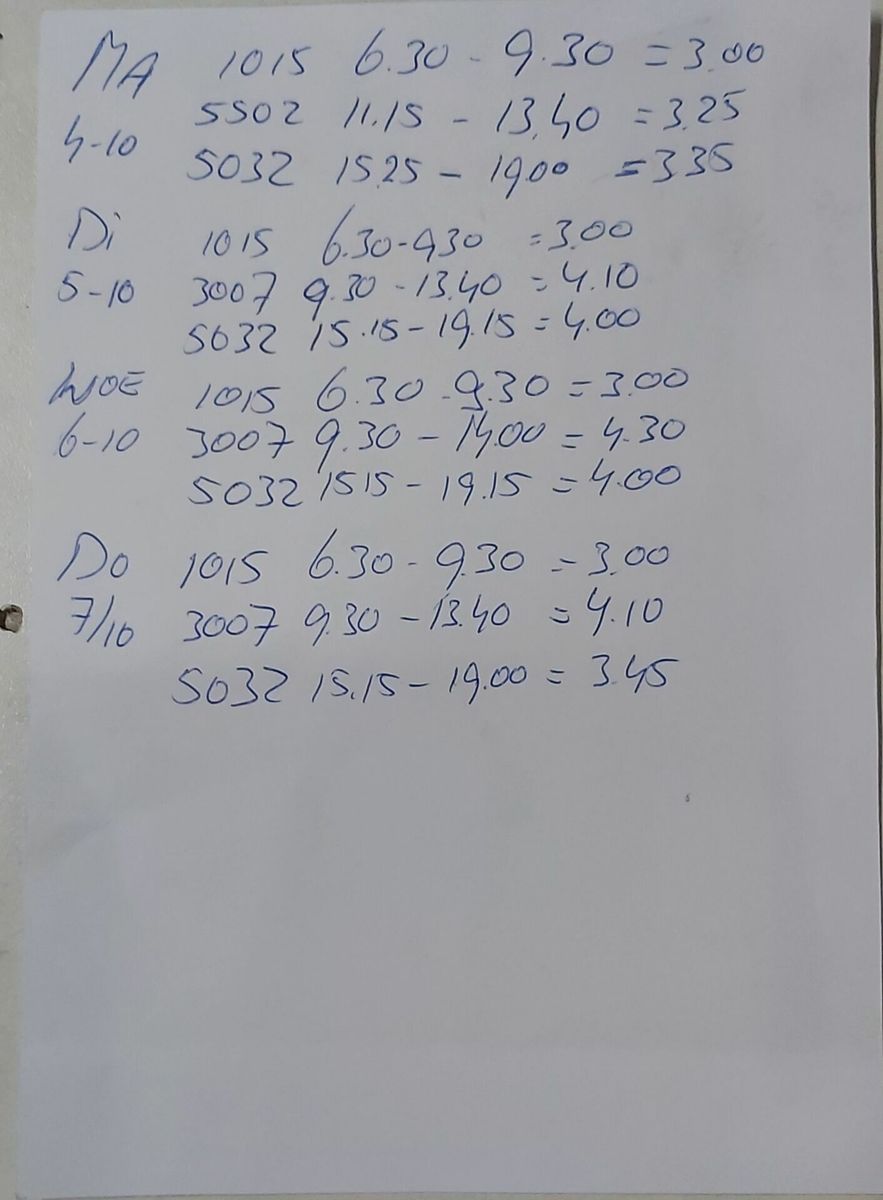 MA 1015 6.30 - 9.30 = 3.00
5502 11.15 - 13.40 = 3.25
4-10
5032 15.25 - 19.00 = 3.35
Di 1015 6.30 - 9.30 = 3.00
5-10 3007 9.30 - 13.40 = 4.10
5032 15.15 - 19.15 = 4.00
WOE 1015 6.30 - 9.30 = 3.00
6-10 3007 9.30 - 14.00 = 4.30
5032 15 15 - 19.15 = 4.00
Do 1015 6.30 - 9.30 = 3.00
7/10 3007 9.30 - 13.40 = 4.10
5032 15.15 - 19.00 = 3.45